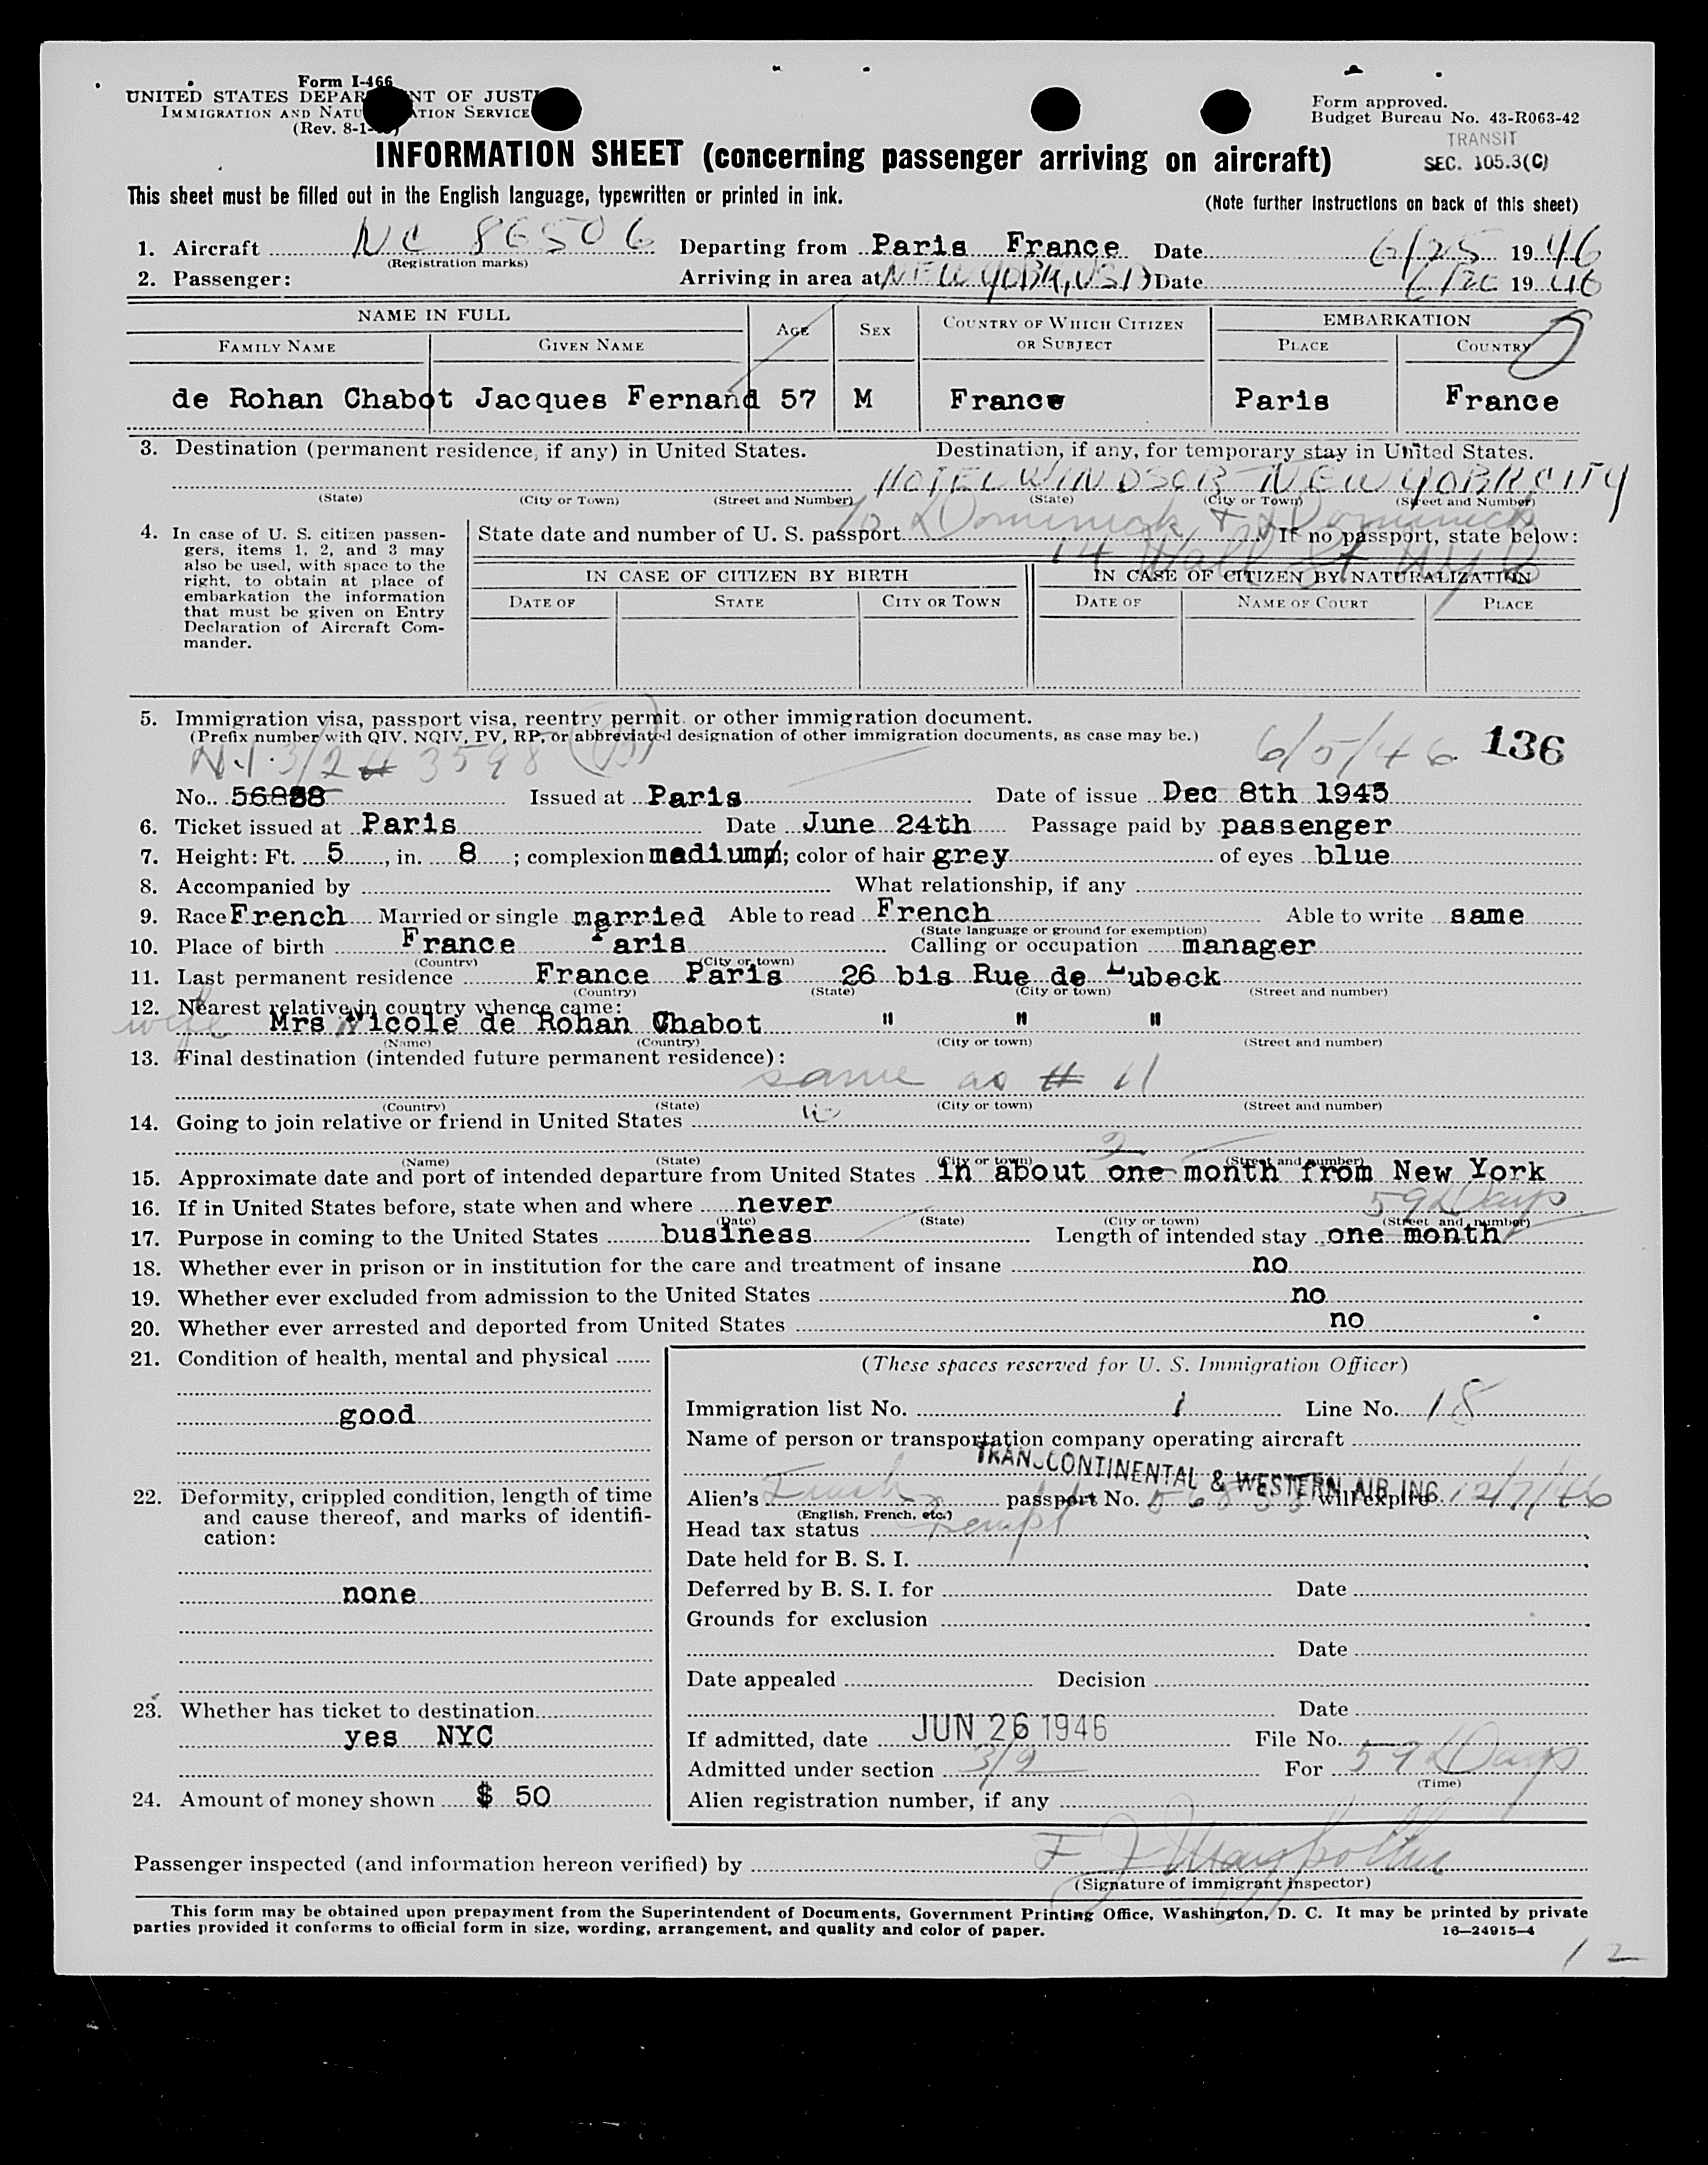 Form I-466
UNITED STATES DEPARTMENT OF JUSTICE
IMMIGRATION AND NATURALIZATION SERVICE
(Rev. 8-1-
Form approved.
Budget Bureau No. 43-R063-42
TRANSIT
SEC. 105.3(C)
INFORMATION SHEET (concerning passenger arriving on aircraft)
This sheet must be filled out in the English language, typewritten or printed in ink.
(Note further instructions on back of this sheet)
1. Aircraft NC 86506 Departing from Paris France Date 6/25 1946
(Registration marks)
2. Passenger: Arriving in area at NEW YORK, USA Date 6/26 1946
NAME IN FULL AGE SEX COUNTRY OF WHICH CITIZEN OR SUBJECT EMBARKATION
FAMILY NAME GIVEN NAME PLACE COUNTRY
de Rohan Chabot Jacques Fernand 57 M France Paris France
3. Destination (permanent residence, if any) in United States. Destination, if any, for temporary stay in United States.
HOTEL WINDSOR NEW YORK CITY
(State) (City or Town) (Street and Number) (State) (City or Town) (Street and Number)
% Dominick & Dominick
14 Wall St NY
4. In case of U. S. citizen passengers, items 1, 2, and 3 may also be used, with space to the right, to obtain at place of embarkation the information that must be given on Entry Declaration of Aircraft Commander.
State date and number of U. S. passport If no passport, state below:
IN CASE OF CITIZEN BY BIRTH IN CASE OF CITIZEN BY NATURALIZATION
DATE OF STATE CITY OR TOWN DATE OF NAME OF COURT PLACE
5. Immigration visa, passport visa, reentry permit, or other immigration document.
(Prefix number with QIV, NQIV, PV, RP, or abbreviated designation of other immigration documents, as case may be.)
N.I. 3/2 # 3598 6/5/46 136
No. 56888 Issued at Paris Date of issue Dec 8th 1945
6. Ticket issued at Paris Date June 24th Passage paid by passenger
7. Height: Ft. 5, in. 8; complexion medium; color of hair grey of eyes blue
8. Accompanied by What relationship, if any
9. Race French Married or single married Able to read French Able to write same
(State language or ground for exemption)
10. Place of birth France Paris Calling or occupation manager
(Country) (City or town)
11. Last permanent residence France Paris 26 bis Rue de Lubeck
(Country) (State) (City or town) (Street and number)
12. Nearest relative in country whence came:
wife Mrs Nicole de Rohan Chabot " " "
(Name) (Country) (City or town) (Street and number)
13. Final destination (intended future permanent residence):
same as # 11
(Country) (State) (City or town) (Street and number)
14. Going to join relative or friend in United States
(Name) (State) (City or town) (Street and number)
2
15. Approximate date and port of intended departure from United States in about one month from New York
16. If in United States before, state when and where never
59 Days
(Date) (State) (City or town) (Street and number)
17. Purpose in coming to the United States business Length of intended stay one month
18. Whether ever in prison or in institution for the care and treatment of insane no
19. Whether ever excluded from admission to the United States no
20. Whether ever arrested and deported from United States no
21. Condition of health, mental and physical
good
22. Deformity, crippled condition, length of time and cause thereof, and marks of identification:
none
23. Whether has ticket to destination
yes NYC
24. Amount of money shown $ 50
(These spaces reserved for U. S. Immigration Officer)
Immigration list No. 1 Line No. 18
Name of person or transportation company operating aircraft
TRANSCONTINENTAL & WESTERN AIR INC.
Alien's French passport No. 56888 will expire 12/7/46
(English, French, etc.)
Head tax status Exempt
Date held for B. S. I.
Deferred by B. S. I. for Date
Grounds for exclusion
Date
Date appealed Decision
Date
If admitted, date JUN 26 1946 File No.
Admitted under section 3/2 For 59 Days
(Time)
Alien registration number, if any
Passenger inspected (and information hereon verified) by
(Signature of immigrant inspector)
This form may be obtained upon prepayment from the Superintendent of Documents, Government Printing Office, Washington, D. C. It may be printed by private
parties provided it conforms to official form in size, wording, arrangement, and quality and color of paper.
16—24915-4
12